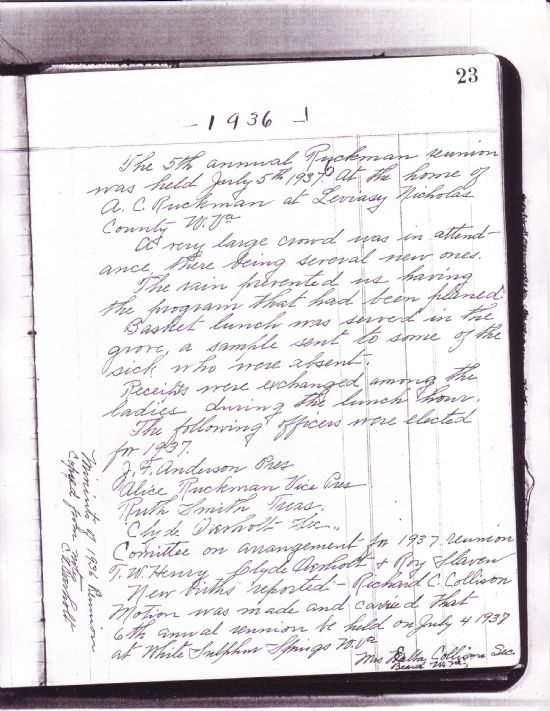 23
- 1936 -
The 5th annual Ruckman reunion
was held July 5th 1937 At the home of
A. C. Ruckman at Leviasy Nicholas
County W. Va
A very large crowd was in attend-
ance, there being several new ones.
The rain prevented us having
the program that had been planed
Basket lunch was served in the
grove, a sample sent to some of the
sick who were absent.
Receipts were exchanged among the
ladies during the lunch hour.
The following officers were elected
for 1937.
J. F. Anderson Pres
Alice Ruckman Vice Pres
Ruth Smith Treas.
Clyde Sec.,
Comittee on arrangement for 1937 reunion
T. W. Henry Clyde & Roy Slaven
New births reported - Richard C. Collison
Motion was made and carried that
6th annual reunion be held on July 4 1937
at White Sulphur Springs W. Va
Mrs Collison Sec.
Minuets of 1936 Reunion
Copied from notes